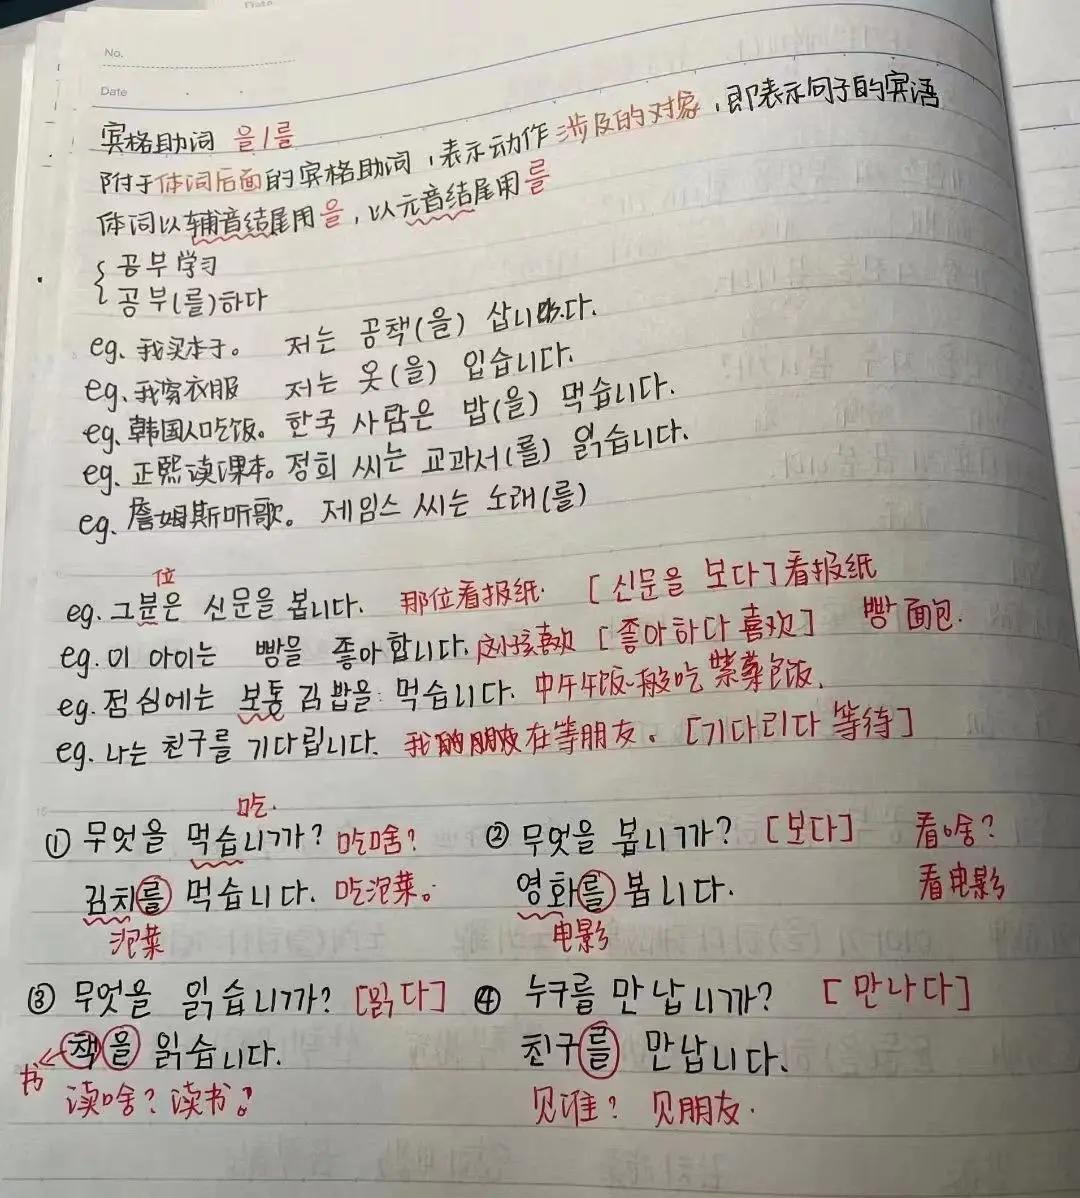 Date
No.
Date
宾格助词 을/를
附于体词后面的宾格助词,表示动作涉及的对象,即表示句子的宾语
体词以辅音结尾用을,以元音结尾用를
공부 学习
공부(를)하다
eg. 我买本子。 저는 공책(을) 삽니다.
eg. 我穿衣服 저는 옷(을) 입습니다.
eg. 韩国人吃饭。 한국 사람은 밥(을) 먹습니다.
eg. 正熙读课本。 정희 씨는 교과서(를) 읽습니다.
eg. 詹姆斯听歌。 제임스 씨는 노래(를)
位
eg. 그분은 신문을 봅니다. 那位看报纸. [신문을 보다]看报纸
eg. 이 아이는 빵을 좋아합니다. 这小孩喜欢 [좋아하다 喜欢] 빵 面包.
eg. 점심에는 보통 김밥을 먹습니다. 中午午饭一般吃 紫菜包饭.
eg. 나는 친구를 기다립니다. 我的朋友在等朋友。 [기다리다 等待]
吃.
① 무엇을 먹습니까? 吃啥? ② 무엇을 봅니까? [보다] 看啥?
김치를 먹습니다. 吃泡菜。 영화를 봅니다. 看电影
泡菜 电影
③ 무엇을 읽습니까? [읽다] ④ 누구를 만납니까? [만나다]
책을 읽습니다. 친구를 만납니다.
书 读啥? 读书。 见谁? 见朋友.